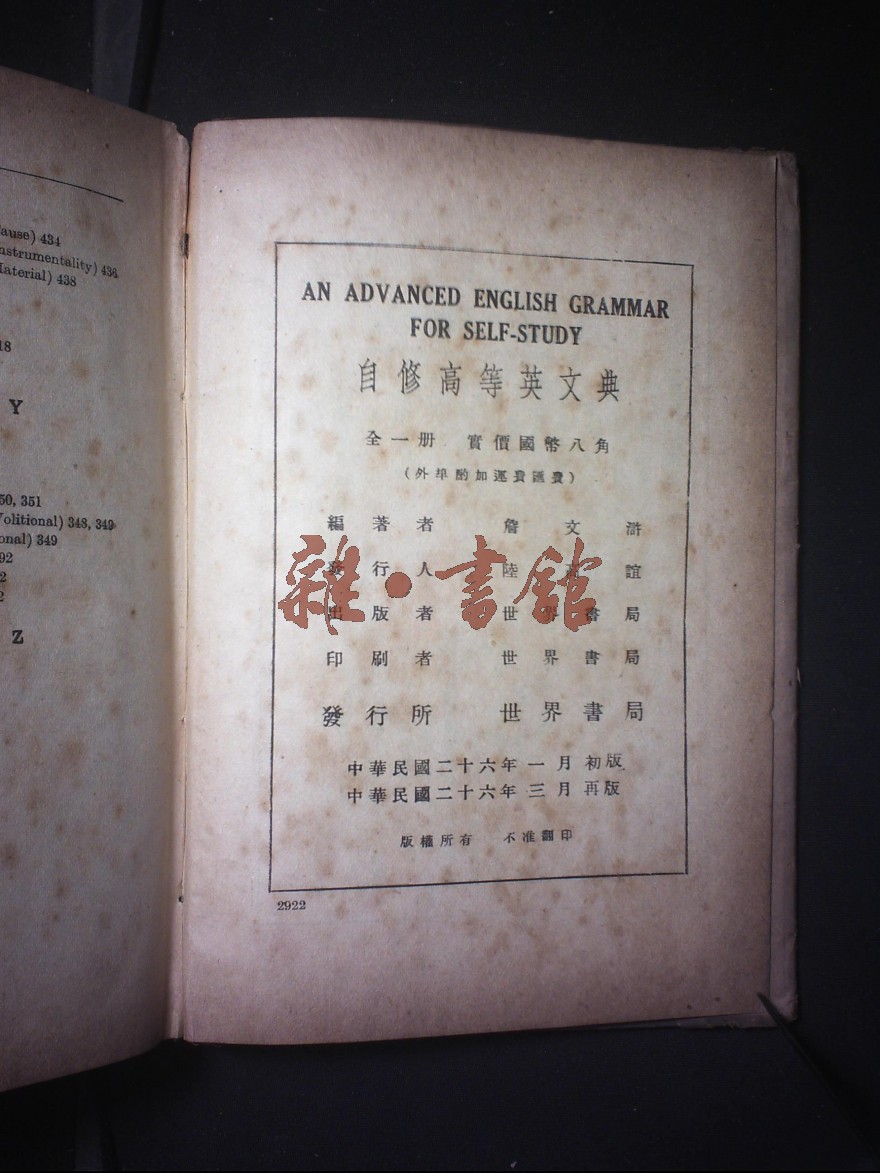 ause) 434
nstrumentality) 436
aterial) 438
18
Y
50, 351
olitional) 348, 349
onal) 349
92
2
2
Z
AN ADVANCED ENGLISH GRAMMAR
FOR SELF-STUDY
自修高等英文典
全一册 實價國幣八角
(外埠酌加運費匯費)
編著者 詹文滸
發行人 陸高誼
出版者 世界書局
印刷者 世界書局
發行所 世界書局
中華民國二十六年一月初版
中華民國二十六年三月再版
版權所有 不准翻印
2922
雜·書館